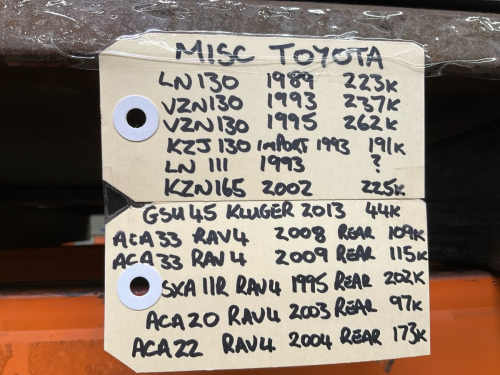 MISC TOYOTA
LN130 1989 223K
VZN130 1993 237K
VZN130 1995 262K
KZJ130 IMPORT 1993 191K
LN 111 1993 ?
KZN165 2002 225K
GSU45 KLUGER 2013 44K
ACA33 RAV4 2008 REAR 109K
ACA33 RAV4 2009 REAR 115K
SXA11R RAV4 1995 REAR 202K
ACA20 RAV4 2003 REAR 97K
ACA22 RAV4 2004 REAR 173K